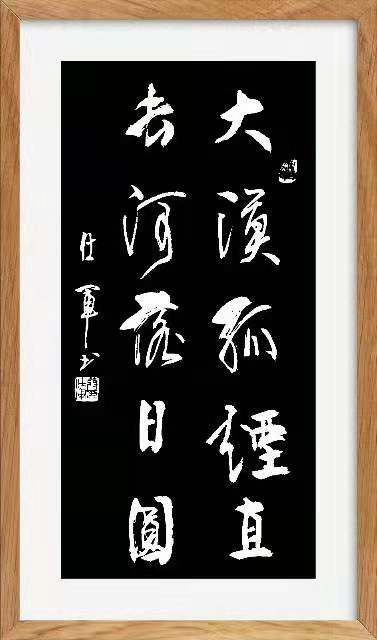 大漠孤煙直
長河落日圓
仕軍书